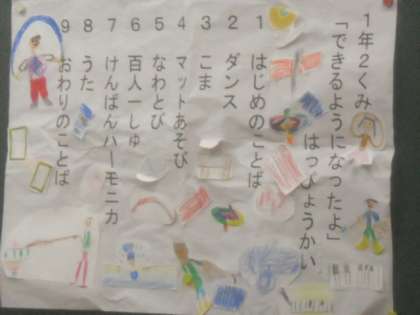 1年2くみ
「できるようになったよ」
はっぴょうかい
1 はじめのことば
2 ダンス
3 こま
4 マットあそび
5 なわとび
6 百人一しゅ
7 けんばんハーモニカ
8 うた
9 おわりのことば